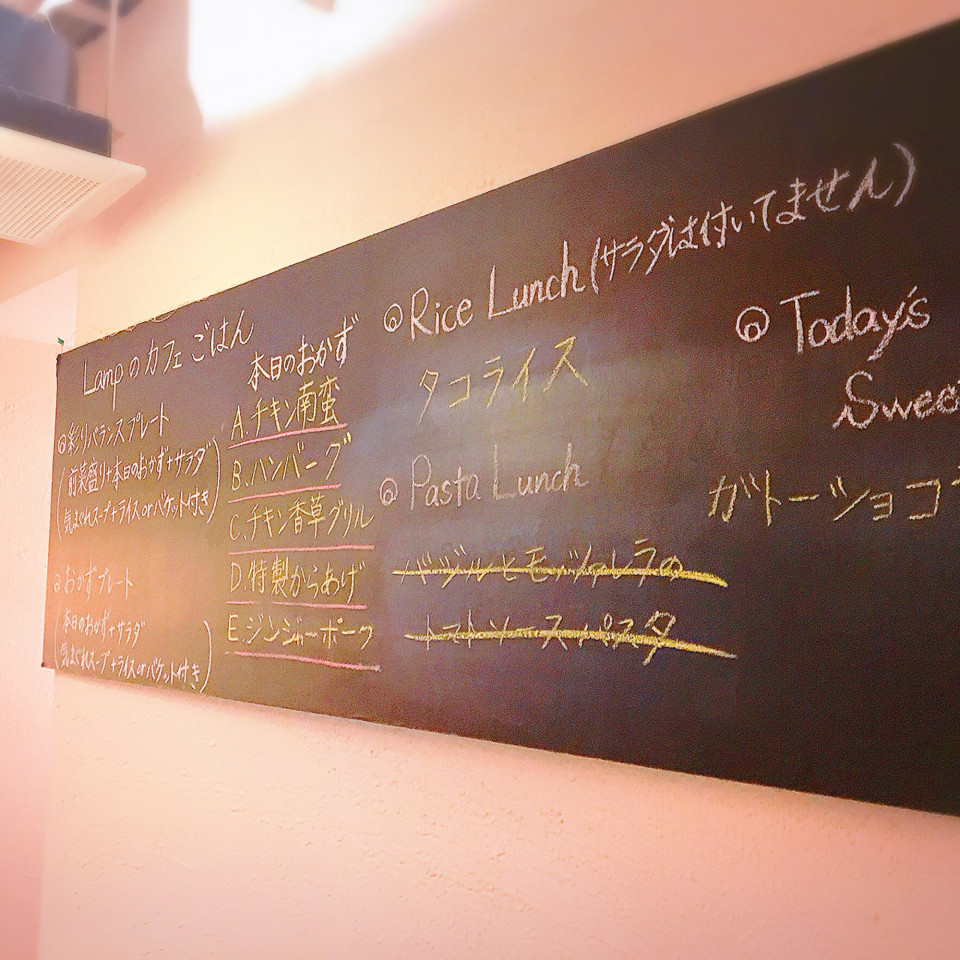 Lampのカフェごはん
◎彩りバランスプレート
(前菜盛り+本日のおかず+サラダ
気まぐれスープ+ライスorバケット付き)
◎おかずプレート
(本日のおかず+サラダ
気まぐれスープ+ライスorバケット付き)
本日のおかず
A.チキン南蛮
B.ハンバーグ
C.チキン香草グリル
D.特製からあげ
E.ジンジャーポーク
◎Rice Lunch(サラダは付いてません)
タコライス
◎Pasta Lunch
バジルとモッツァレラの
トマトソースパスタ
◎Today's
Sweet
ガトーショコ